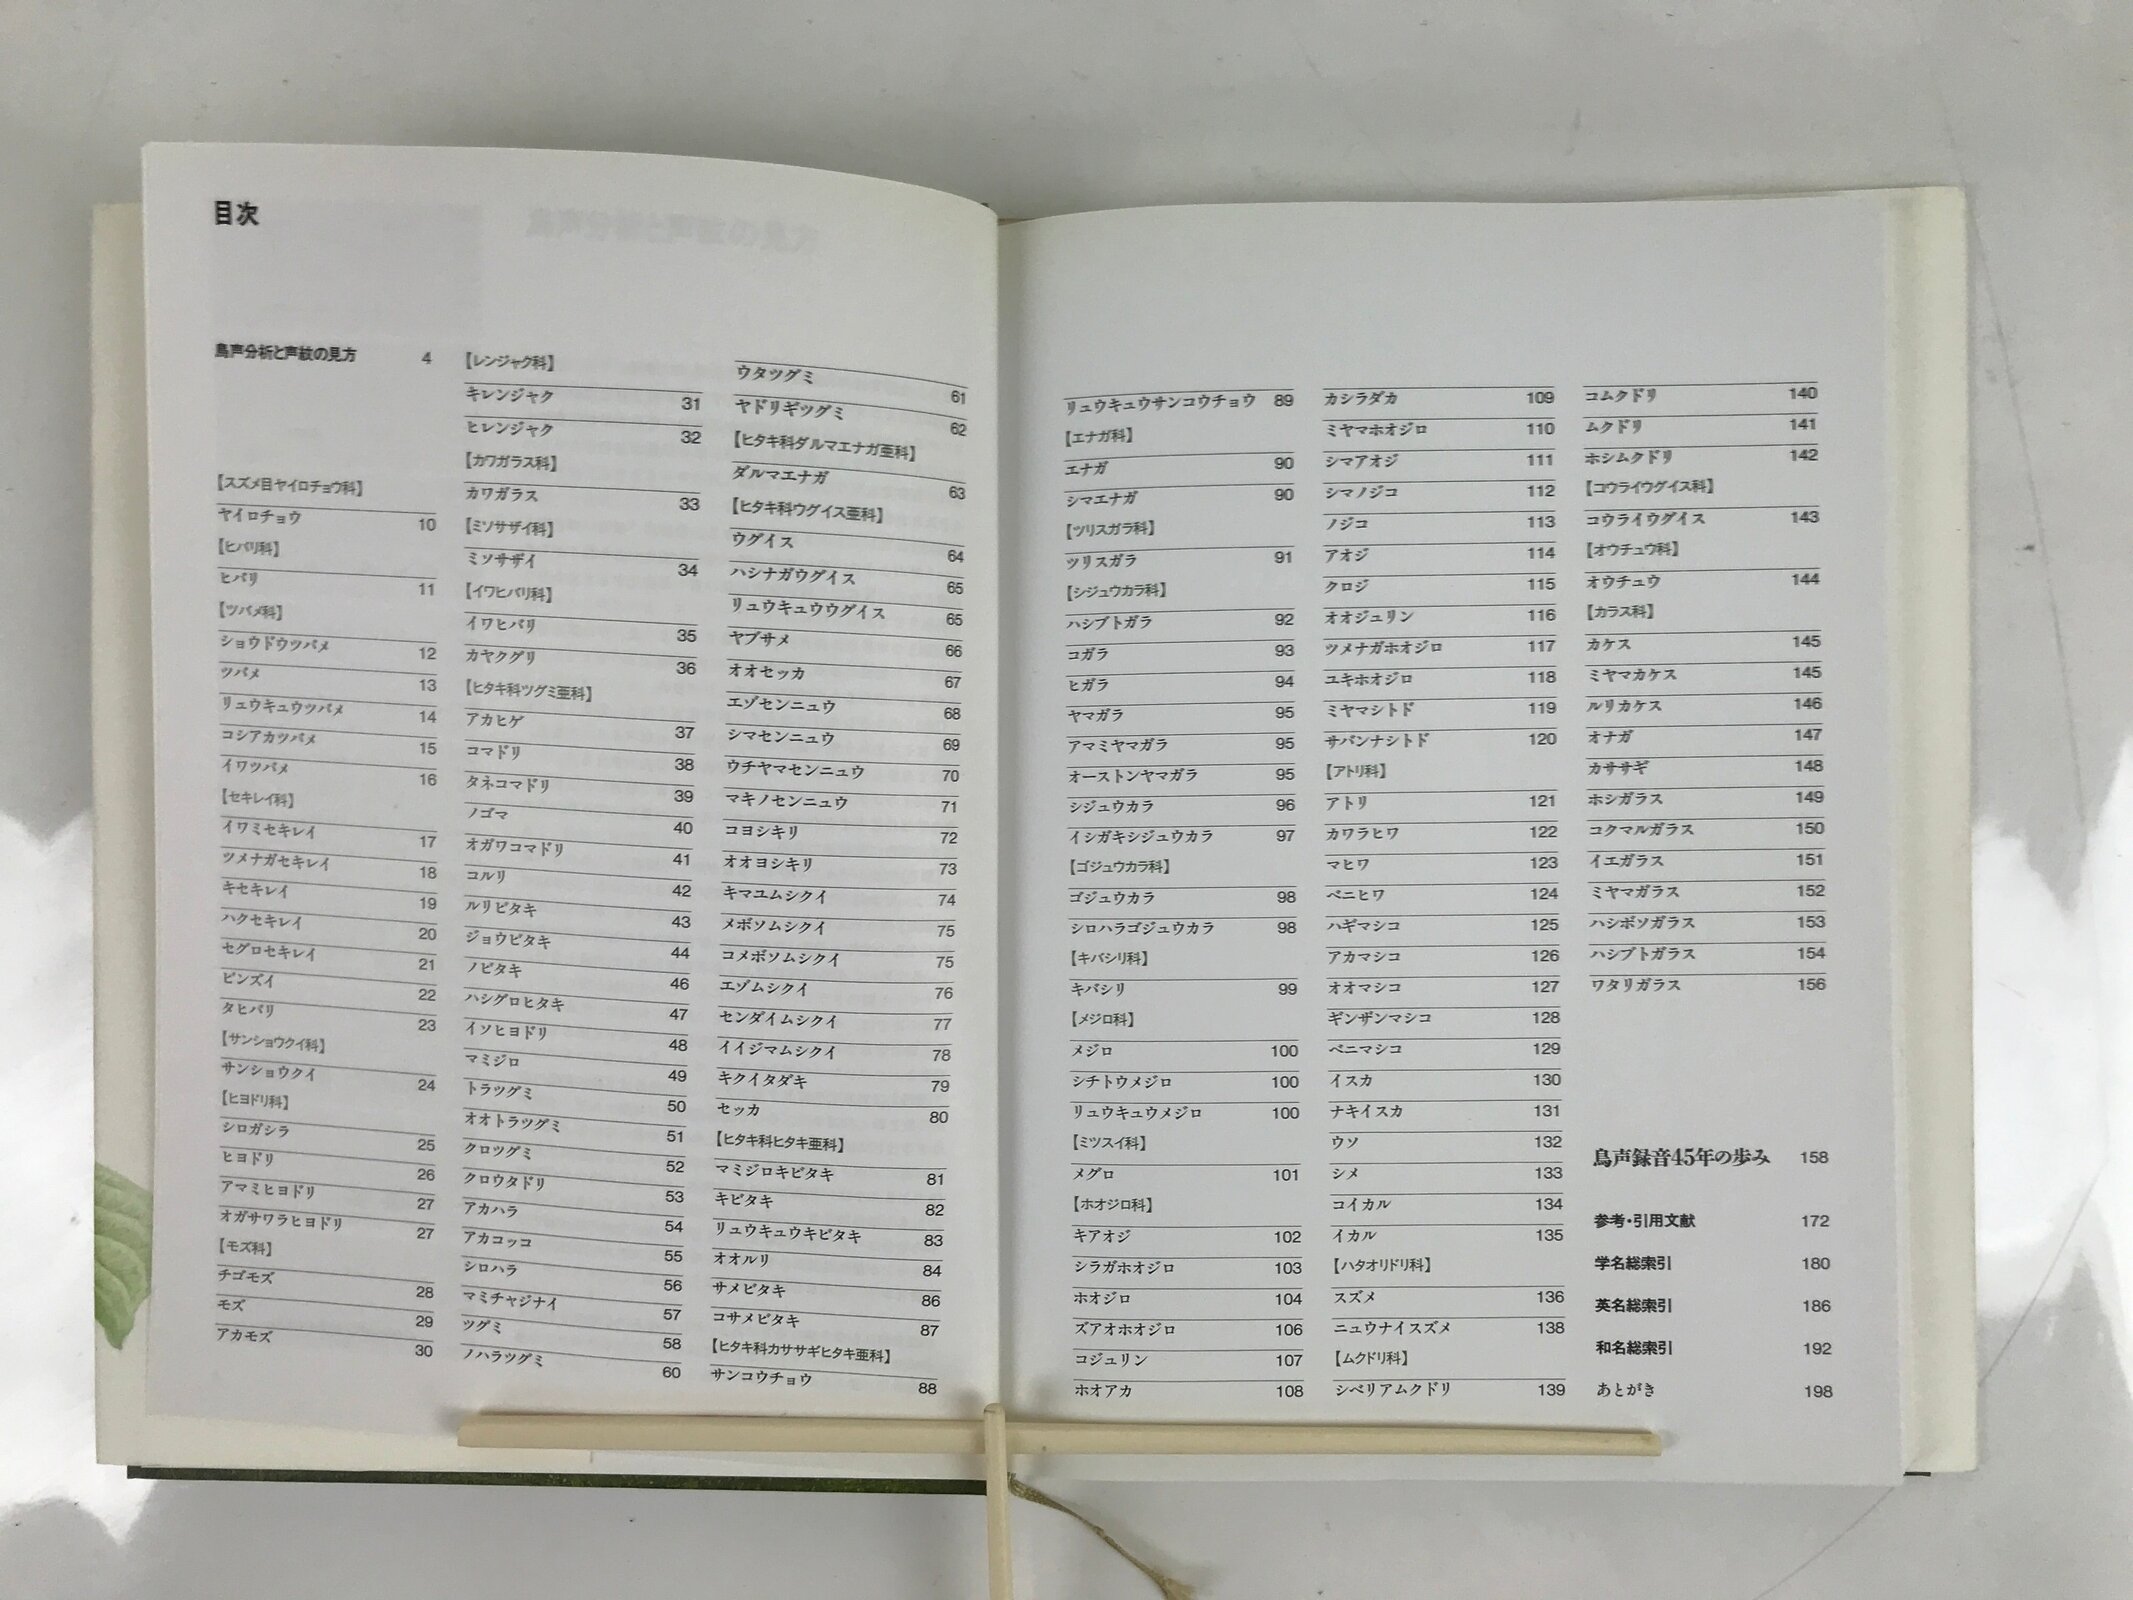 目次
鳥声分析と声紋の見方 4
【スズメ目ヤイロチョウ科】
ヤイロチョウ 10
【ヒバリ科】
ヒバリ 11
【ツバメ科】
ショウドウツバメ 12
ツバメ 13
リュウキュウツバメ 14
コシアカツバメ 15
イワツバメ 16
【セキレイ科】
イワミセキレイ 17
ツメナガセキレイ 18
キセキレイ 19
ハクセキレイ 20
セグロセキレイ 21
ビンズイ 22
タヒバリ 23
【サンショウクイ科】
サンショウクイ 24
【ヒヨドリ科】
シロガシラ 25
ヒヨドリ 26
アマミヒヨドリ 27
オガサワラヒヨドリ 27
【モズ科】
チゴモズ 28
モズ 29
アカモズ 30
【レンジャク科】
キレンジャク 31
ヒレンジャク 32
【カワガラス科】
カワガラス 33
【ミソサザイ科】
ミソサザイ 34
【イワヒバリ科】
イワヒバリ 35
カヤクグリ 36
【ヒタキ科ツグミ亜科】
アカヒゲ 37
コマドリ 38
タネコマドリ 39
ノゴマ 40
オガワコマドリ 41
コルリ 42
ルリビタキ 43
ジョウビタキ 44
ノビタキ 46
ハシグロヒタキ 47
イソヒヨドリ 48
マミジロ 49
トラツグミ 50
オオトラツグミ 51
クロツグミ 52
クロウタドリ 53
アカハラ 54
アカコッコ 55
シロハラ 56
マミチャジナイ 57
ツグミ 58
ノハラツグミ 60
ウタツグミ 61
ヤドリギツグミ 62
【ヒタキ科ダルマエナガ亜科】
ダルマエナガ 63
【ヒタキ科ウグイス亜科】
ウグイス 64
ハシナガウグイス 65
リュウキュウウグイス 65
ヤブサメ 66
オオセッカ 67
エゾセンニュウ 68
シマセンニュウ 69
ウチヤマセンニュウ 70
マキノセンニュウ 71
コヨシキリ 72
オオヨシキリ 73
キマユムシクイ 74
メボソムシクイ 75
コメボソムシクイ 75
エゾムシクイ 76
センダイムシクイ 77
イイジマムシクイ 78
キクイタダキ 79
セッカ 80
【ヒタキ科ヒタキ亜科】
マミジロキビタキ 81
キビタキ 82
リュウキュウキビタキ 83
オオルリ 84
サメビタキ 86
コサメビタキ 87
【ヒタキ科カササギヒタキ亜科】
サンコウチョウ 88
リュウキュウサンコウチョウ 89
【エナガ科】
エナガ 90
シマエナガ 90
【ツリスガラ科】
ツリスガラ 91
【シジュウカラ科】
ハシブトガラ 92
コガラ 93
ヒガラ 94
ヤマガラ 95
アマミヤマガラ 95
オーストンヤマガラ 95
シジュウカラ 96
イシガキシジュウカラ 97
【ゴジュウカラ科】
ゴジュウカラ 98
シロハラゴジュウカラ 98
【キバシリ科】
キバシリ 99
【メジロ科】
メジロ 100
シチトウメジロ 100
リュウキュウメジロ 100
【ミツスイ科】
メグロ 101
【ホオジロ科】
キアオジ 102
シラガホオジロ 103
ホオジロ 104
ズアオホオジロ 106
コジュリン 107
ホオアカ 108
カシラダカ 109
ミヤマホオジロ 110
シマアオジ 111
シマノジコ 112
ノジコ 113
アオジ 114
クロジ 115
オオジュリン 116
ツメナガホオジロ 117
ユキホオジロ 118
ミヤマシトド 119
サバンナシトド 120
【アトリ科】
アトリ 121
カワラヒワ 122
マヒワ 123
ベニヒワ 124
ハギマシコ 125
アカマシコ 126
オオマシコ 127
ギンザンマシコ 128
ベニマシコ 129
イスカ 130
ナキイスカ 131
ウソ 132
シメ 133
コイカル 134
イカル 135
【ハタオリドリ科】
スズメ 136
ニュウナイスズメ 138
【ムクドリ科】
シベリアムクドリ 139
コムクドリ 140
ムクドリ 141
ホシムクドリ 142
【コウライウグイス科】
コウライウグイス 143
【オウチュウ科】
オウチュウ 144
【カラス科】
カケス 145
ミヤマカケス 145
ルリカケス 146
オナガ 147
カササギ 148
ホシガラス 149
コクマルガラス 150
イエガラス 151
ミヤマガラス 152
ハシボソガラス 153
ハシブトガラス 154
ワタリガラス 156
鳥声録音45年の歩み 158
参考・引用文献 172
学名総索引 180
英名総索引 186
和名総索引 192
あとがき 198